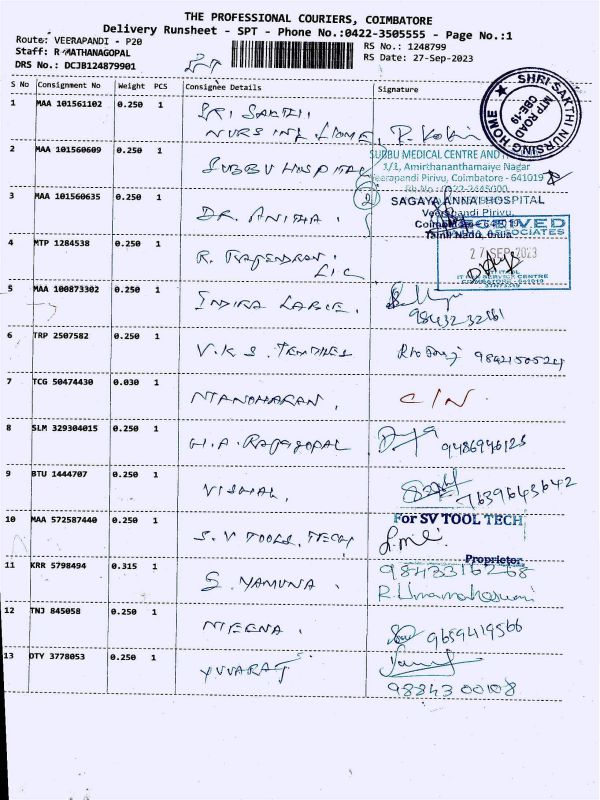 THE PROFESSIONAL COURIERS, COIMBATORE
Delivery Runsheet - SPT - Phone No.:0422-3505555 - Page No.:1
Route: VEERAPANDI - P20
RS No.: 1248799
Staff: R MATHANAGOPAL
RS Date: 27-Sep-2023
DRS No.: DCJB124879901
S No Consignment No Weight PCS Consignee Details Signature
1 MAA 101561102 0.250 1 SRI SAKTHI
NURSING HOME.
SHRI SAKTHI NURSING HOME
MTP ROAD
CBE-19
2 MAA 101560609 0.250 1 SUBBU HOSPITAL
SUBBU MEDICAL CENTRE AND
1/1, Amirthananthamaiye Nagar
Veerapandi Pirivu, Coimbatore - 641019
3 MAA 101560635 0.250 1 DR. ANITHA.
2
SAGAYA ANNAI HOSPITAL
Veerapandi Pirivu,
Tamil Nadu, India
4 MTP 1284538 0.250 1 R. RAJENDRAN.
LIC
RECEIVED
ASSOCIATES
27 SEP 2023
5 MAA 100873302 0.250 1 INDIRA
9843232561
6 TRP 2507582 0.250 1 V.K.S. TEXTILES
9842150524
7 TCG 50474430 0.030 1 MANOHARAN.
C/N.
8 SLM 329304015 0.250 1 H.A. RAJAGOPAL
9486946125
9 BTU 1444707 0.250 1 VISHAL.
7639643642
10 MAA 572587440 0.250 1 S.V TOOLS. TECH
For SV TOOL TECH
Proprietor
11 KRR 5798494 0.315 1 S. YAMUNA.
9843316268
R. Umamaheswari
12 TNJ 845058 0.250 1 MEENA.
9659419566
13 DTY 3778053 0.250 1 YUVARAJ
9884300108